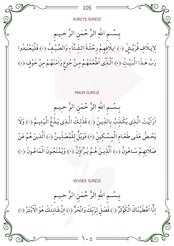 105
KUREYŞ SURESİ
بِسْمِ اللهِ الرَّحْمٰنِ الرَّحِيمِ
لِإِيلَافِ قُرَيْشٍ ﴿١﴾ إِيلَافِهِمْ رِحْلَةَ الشِّتَاءِ وَالصَّيْفِ ﴿٢﴾ فَلْيَعْبُدُوا
رَبَّ هٰذَا الْبَيْتِ ﴿٣﴾ الَّذِي أَطْعَمَهُمْ مِنْ جُوعٍ وَآمَنَهُمْ مِنْ خَوْفٍ ﴿٤﴾
MAUN SURESİ
بِسْمِ اللهِ الرَّحْمٰنِ الرَّحِيمِ
أَرَأَيْتَ الَّذِي يُكَذِّبُ بِالدِّينِ ﴿١﴾ فَذٰلِكَ الَّذِي يَدُعُّ الْيَتِيمَ ﴿٢﴾ وَلَا
يَحُضُّ عَلَى طَعَامِ الْمِسْكِينِ ﴿٣﴾ فَوَيْلٌ لِلْمُصَلِّينَ ﴿٤﴾ الَّذِينَ هُمْ عَنْ
صَلَاتِهِمْ سَاهُونَ ﴿٥﴾ الَّذِينَ هُمْ يُرَاؤُنَ ﴿٦﴾ وَيَمْنَعُونَ الْمَاعُونَ ﴿٧﴾
KEVSER SURESİ
بِسْمِ اللهِ الرَّحْمٰنِ الرَّحِيمِ
إِنَّا أَعْطَيْنَاكَ الْكَوْثَرَ ﴿١﴾ فَصَلِّ لِرَبِّكَ وَانْحَرْ ﴿٢﴾ إِنَّ شَانِئَكَ هُوَ الْأَبْتَرُ ﴿٣﴾
١٠٥